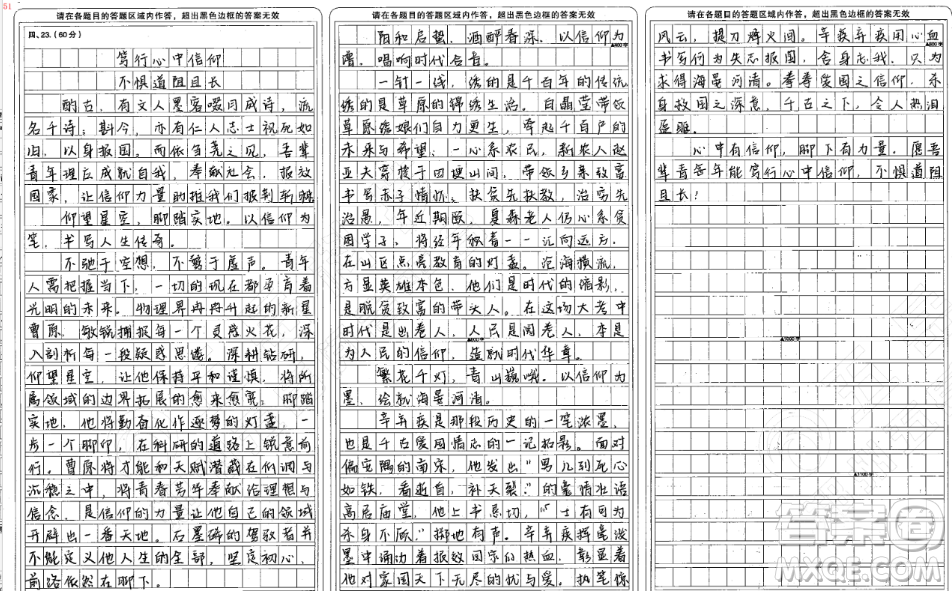 51
请在各题目的答题区域内作答，超出黑色边框的答案无效
四、23.(60分)
笃行心中信仰
不惧道阻且长
酌古，有文人墨客啜月成诗，流
名千诗；斟今，亦有仁人志士视死如
归，以身报国。而依刍荛之见，吾辈
青年理应成就自我，奉献社会，报效
国家，让信仰力量助推我们
仰望星空，脚踏实地。以信仰为
笔，书写人生传奇。
不驰于空想，不骛于虚声。青年
人需把握当下，一切的现在都孕育着
光明的未来。物理界冉冉升起的新星
曹原，敏锐捕捉每一个灵感火花，深
入剖析每一段疑惑思绪。深耕钻研，
仰望星空，让他保持平和谨慎，将所
属领域的边界拓展的愈来愈宽；脚踏
实地，他将勤奋化作逐梦的灯盏，一
步一个脚印，在科研的道路上锐意前
行。曹原将才能和天赋潜藏在低调与
沉稳之中，将青春芳华奉献给理想与
信念，是信仰的力量让他自己的领域
开辟出一番天地。石墨烯的驾驭者并
不能定义他人生的全部，坚定初心，
前路依然在脚下。
请在各题目的答题区域内作答，超出黑色边框的答案无效
阳和启蛰，酒酽春深。以信仰为
谱，唱响时代合音。
一针一线，绣的是千百年的传统，
绣的是草原的锦绣生活。白晶莹带领
草原绣娘们自力更生，牵起千百户的
未来与希望；一心系农民，新农人赵
亚夫高筱于田埂山间，带领乡亲致富
书写赤子情怀。扶贫先扶教，治穷先
治愚，年近期颐，是森老人仍心系贫
困学子，将经年积蓄一一汇向远方，
在山区点亮教育的灯盏。沧海横流，
方显英雄本色，他们是时代的缩影，
是脱贫致富的带头人。在这场大考中
时代是出卷人，人民是阅卷人，本是
为人民的信仰，造就时代华章。
繁花千灯，青山巍峨。以信仰为
墨，绘就海晏河清。
辛弃疾是那段历史的一笔浓墨，
也是千古爱国情志的一记拓影。面对
偏安隅的南宋，他发出“男儿到死心
如铁，看逝自，补天裂。”的豪情壮语
高居庙堂，他上书恳切，“士有可为
杀身不顾。”掷地有声。辛弃疾挥毫泼
墨中涌动着报效国家的热血，彰显着
他对家国天下无尽的忧与爱。执笔惊
请在各题目的答题区域内作答，超出黑色边框的答案无效
风云，提刀辟火间。辛弃疾用心血
书写何为矢志报国，舍身忘我，只为
求得海晏河清。辛弃疾国之信仰，杀
身救国之深意，千古之下，令人热泪
盈眶。
心中有信仰，脚下有力量，愿吾
辈青年能笃行心中信仰，不惧道阻
且长！
答案圈
MXQE.COM